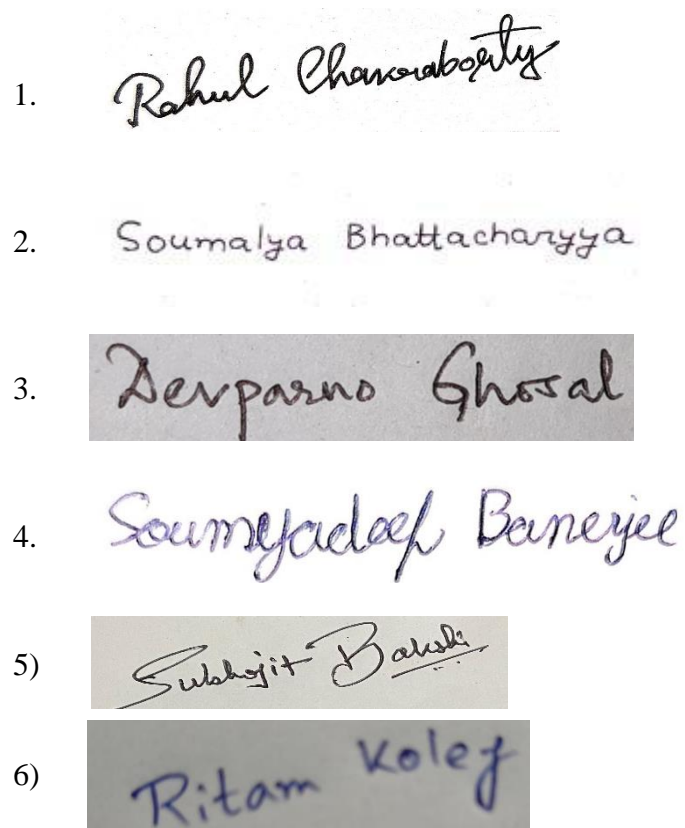 1. Rahul Chakraborty
2. Soumalya Bhattacharyya
3. Devparno Ghosal
4. Soumyadeep Banerjee
5) Subhojit Bakshi
6) Ritam Koley